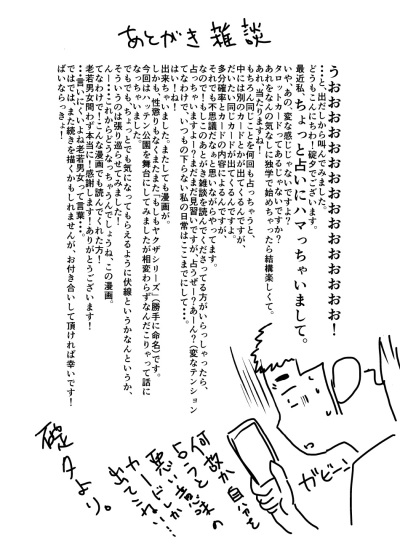 あとがき雑談
うおおおおおおおおおおおおおおおおお！
・・・と出だしから叫んでみました、
どうもこんにちわ！碇タでございます。
最近私、ちょっと占いにハマっちゃいまして。
いや、あの、変な感じじゃないですよ？
タロットカードってあるじゃないですか？
あれをなんの気なしに独学で始めちゃったら結構楽しくて。
あれ、当たりますね！
もちろん同じことを何回も占っちゃうと、
中には別のカードとかが出てくるんですが、
だいたい同じカードが出てくるんですよ。
多分確率とカードの内容によるんでしょうが、
それでも不思議だなぁと思いながらやってます。
なので！もしこのあとがき雑談を読んでくださってる方がいらっしゃったら、
占っちゃいますよー？まだまだ見習いですが、占うぜー？あーん？（変なテンション
はい！ね！
てなわけで、いつもの下らない私の日常はここまでにして・・・。
出来ちゃいました。またしても漫画が。
しかも、性懲りもなくまたしてもヤクザシリーズ（勝手に命名）です。
今回はハッテン公園を舞台にしてみましたが相変わらずなんだこりゃって話に
なっちゃいました。
でもでも、ちょっとでも気になってもらえるように伏線というかなんというか、
そういうのは張り巡らせてみました！
んー・・・これからどうなっちゃうんでしょうね、この漫画。
てなわけで！こんな漫画でも読んでくれた方！
老若男女問わず本当に！感謝します！ありがとうございます！
・・・言いにくいよね老若男女って言葉・・・。
ではでは、また続きを描くかもしれませんが、お付き合いして頂ければ幸いです！
ばいならっきょ！
ガビーン
何故か自分を
占うと
悪い意味の
カードしか
出てこない…
碇タより。